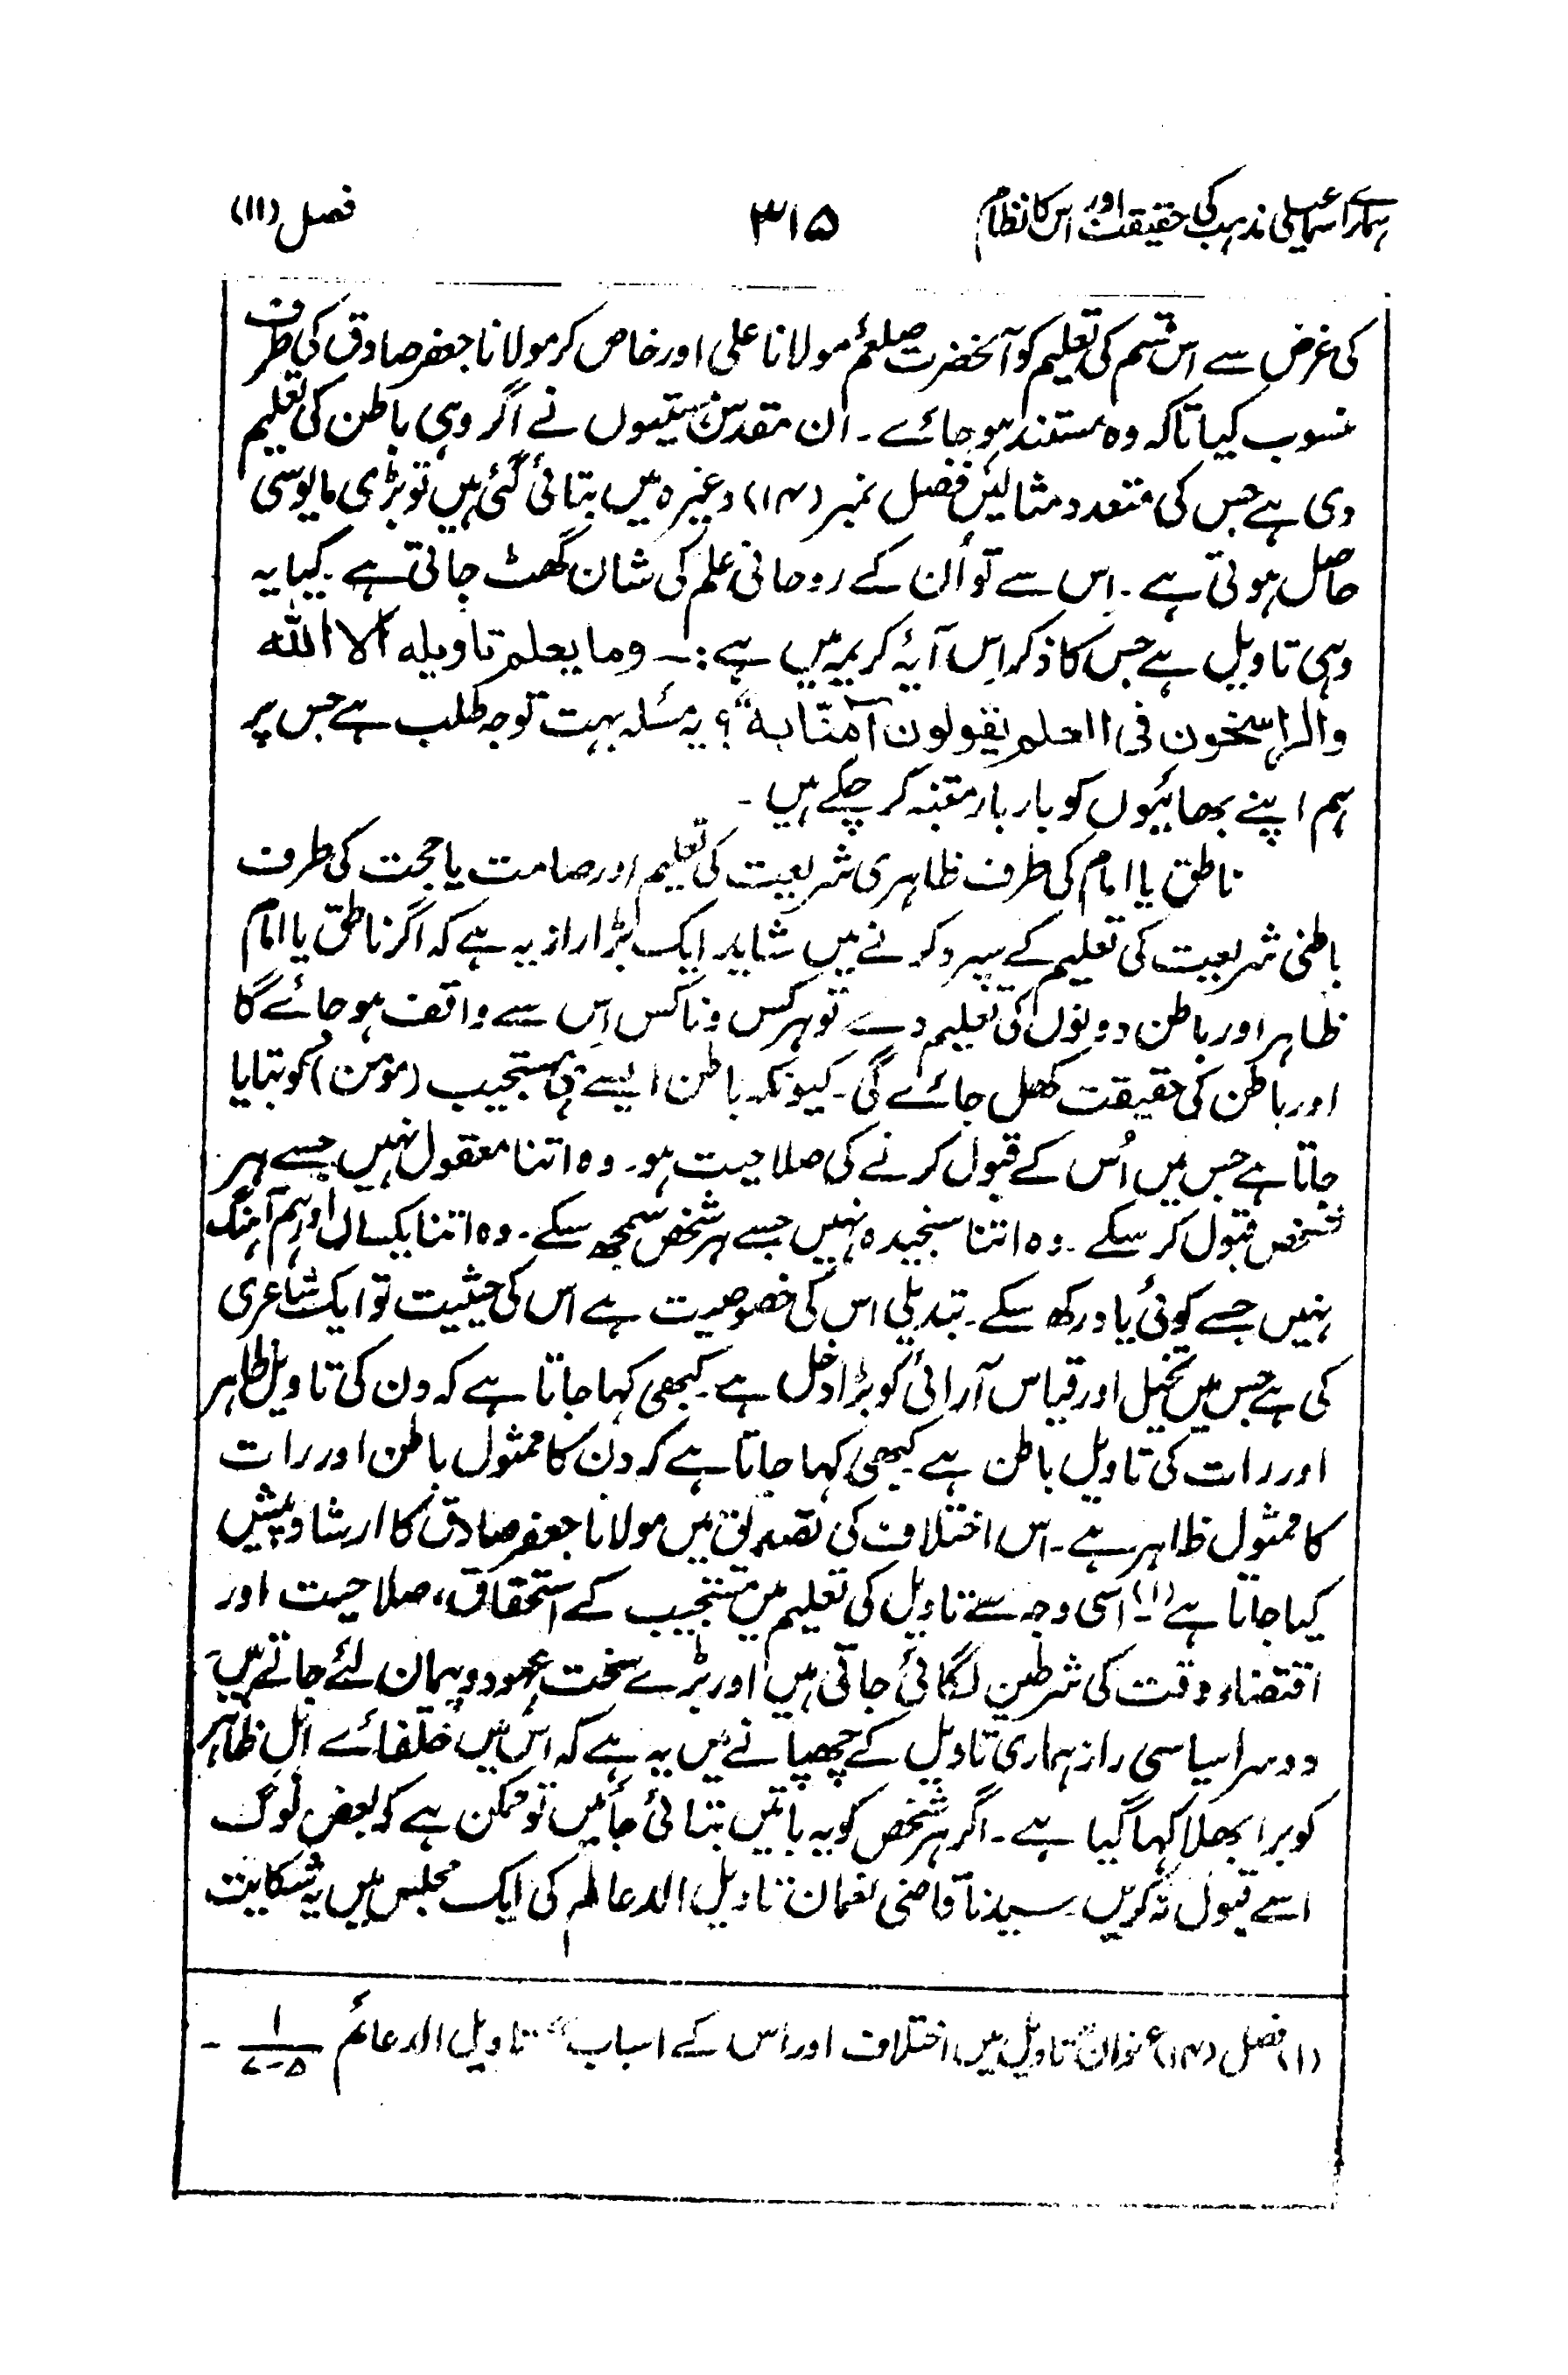 ہمارے اسماعیلی مذہب کی حقیقت اور اس کا نظام ۳۱۵ فصل (۱۱)
کی غرض سے اس قسم کی تعلیم کو آنحضرت صلعم مولانا علی اور خاص کر مولانا جعفر صادق کی طرف
منسوب کیا تاکہ وہ مستند ہو جائے۔ ان مقدس ہستیوں نے اگر وہی باطن کی تعلیم
دی ہے جس کی متعدد مثالیں فصل نمبر (۱۴) وغیرہ میں بتائی گئی ہیں تو بڑی مایوسی
حاصل ہوتی ہے۔ اِس سے تو اُن کے روحانی علم کی شان گھٹ جاتی ہے۔ کیا یہ
وہی تاویل ہے جس کا ذکر اِس آیۂ کریمہ میں ہے:۔ وما یعلم تاویلہ الا اللہ
والراسخون فی العلم یقولون آمنّا بہ“؟ یہ مسئلہ بہت توجہ طلب ہے جس پر
ہم اپنے بھائیوں کو بار بار متنبہ کر چکے ہیں۔
ناطق یا امام کی طرف ظاہری شریعت کی تعلیم اور صامت یا حجت کی طرف
باطنی شریعت کی تعلیم کے سپرد کرنے میں شاید ایک بڑا راز یہ ہے کہ اگر ناطق یا امام
ظاہر اور باطن دونوں کی تعلیم دے تو ہر کس و ناکس اِس سے واقف ہو جائے گا
اور باطن کی حقیقت کھل جائے گی۔ کیونکہ باطن ایسے ہی مستجیب (مومن) کو بتایا
جاتا ہے جس میں اُس کے قبول کرنے کی صلاحیت ہو۔ وہ اتنا معقول نہیں جسے ہر
شخص قبول کر سکے۔ وہ اتنا سنجیدہ نہیں جسے ہر شخص سمجھ سکے۔ وہ اتنا یکساں اور ہم آہنگ
نہیں جسے کوئی یاد رکھ سکے۔ تبدیلی اس کی خصوصیت ہے اس کی حیثیت تو ایک شاعری
کی ہے جس میں تخیل اور قیاس آرائی کو بڑا دخل ہے۔ کبھی کہا جاتا ہے کہ دن کی تاویل ظاہر
اور رات کی تاویل باطن ہے کبھی کہا جاتا ہے کہ دن کا ممثول باطن اور رات
کا ممثول ظاہر ہے۔ اس اختلاف کی تصدیق میں مولانا جعفر صادق کا ارشاد پیش
کیا جاتا ہے (۱)۔ اسی وجہ سے تاویل کی تعلیم میں مستجیب کے استحقاق، صلاحیت اور
اقتضاء وقت کی شرطیں لگائی جاتی ہیں اور بڑے سخت عہود و پیمان لئے جاتے ہیں۔
دوسرا سیاسی راز ہماری تاویل کے چھپانے میں یہ ہے کہ اس میں خلفائے اہلِ ظاہر
کو برا بھلا کہا گیا ہے۔ اگر ہر شخص کو یہ باتیں بتائی جائیں تو ممکن ہے کہ بعض لوگ
اسے قبول نہ کریں۔ سیدنا قاضی نعمان تاویل الدعائم کی ایک مجلس میں یہ شکایت
(۱) فصل (۱۴) عنوان ”تاویل میں اختلاف اور اس کے اسباب“ تاویل الدعائم ۱/۵-۷ ۔